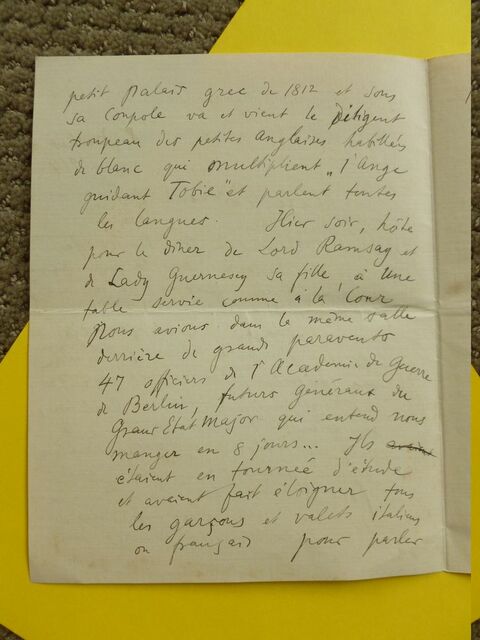 petit Palais grec de 1812 et sous
sa Coupole va et vient le Diligent
troupeau des petites Anglaises habillées
de blanc qui multiplient „l'Ange
guidant Tobie" et parlent toutes
les langues. Hier soir, hôte
pour le dîner de Lord Ramsay et
de Lady Guernesey sa fille, à une
table servie comme à la Cour
Nous avions dans la même salle
derrière de grands paravents
47 officiers de l'Académie de Guerre
de Berlin, futurs généraux du
Grand Etat Major qui entend nous
manger en 8 jours... Ils avaient
étaient en tournée d'étude
et avaient fait éloigner tous
les garçons et valets italiens
ou français pour parler